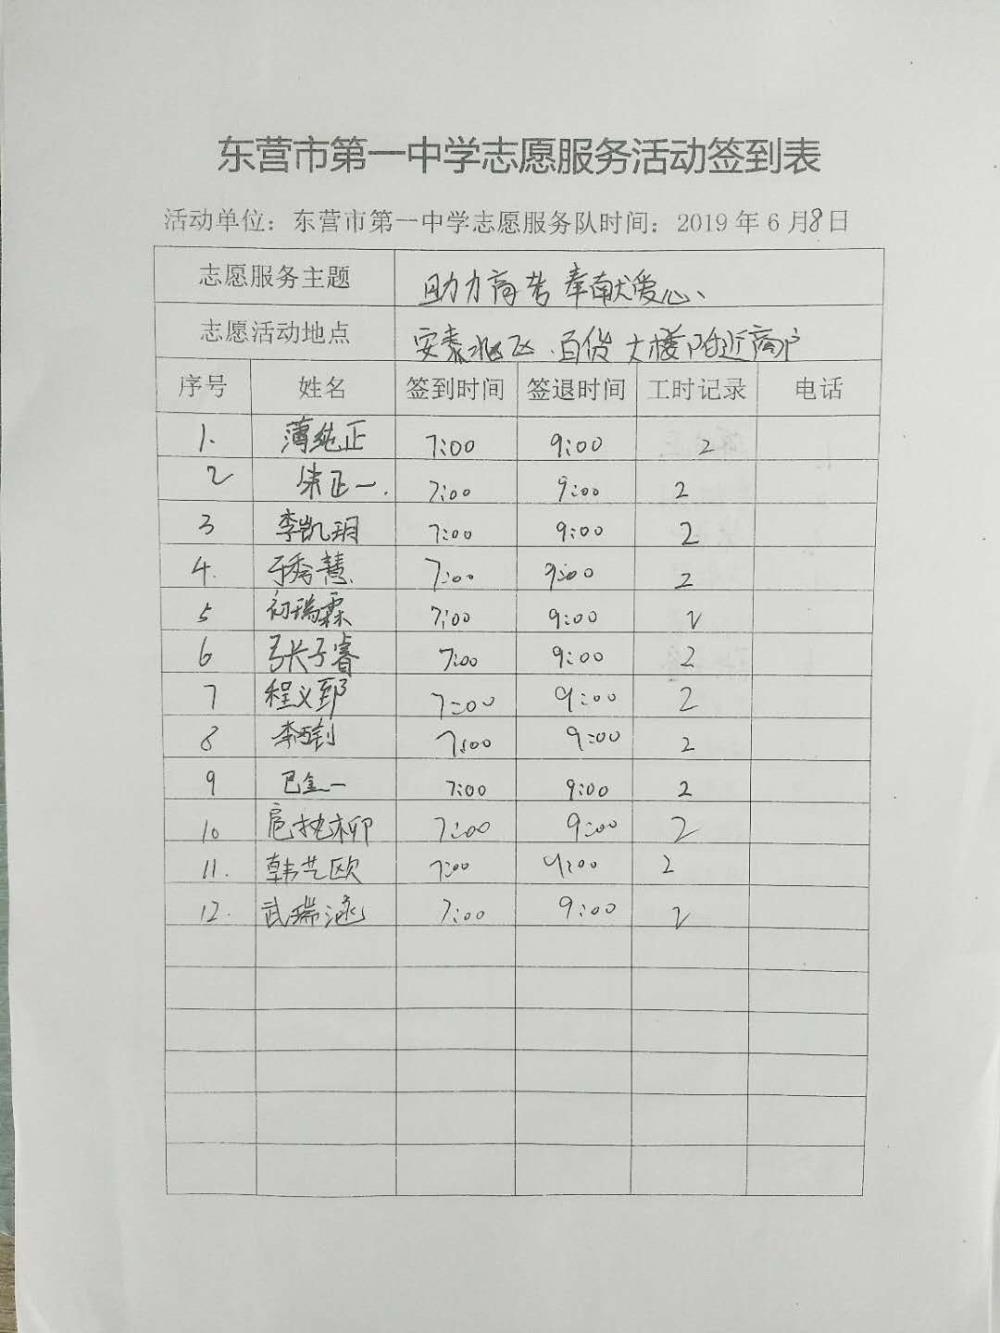 东营市第一中学志愿服务活动签到表
活动单位：东营市第一中学志愿服务队时间：2019 年 6 月8日
志愿服务主题 助力高考 奉献爱心、
志愿活动地点 安泰 飞、百货大楼附近商户
序号 姓名 签到时间 签退时间 工时记录 电话
1. 薄纯正 7:00 9:00 2
2 朱正一. 7:00 9:00 2
3 李凯玥 7:00 9:00 2
4. 于秀慧 7:00 9:00 2
5 初瑞霖 7:00 9:00 2
6 张子睿 7:00 9:00 2
7 程义郅 7:00 9:00 2
8 李 钊 7:00 9:00 2
9 巴金一 7:00 9:00 2
10 柳 7:00 9:00 2
11. 韩艺欧 7:00 9:00 2
12. 武瑞涵 7:00 9:00 2